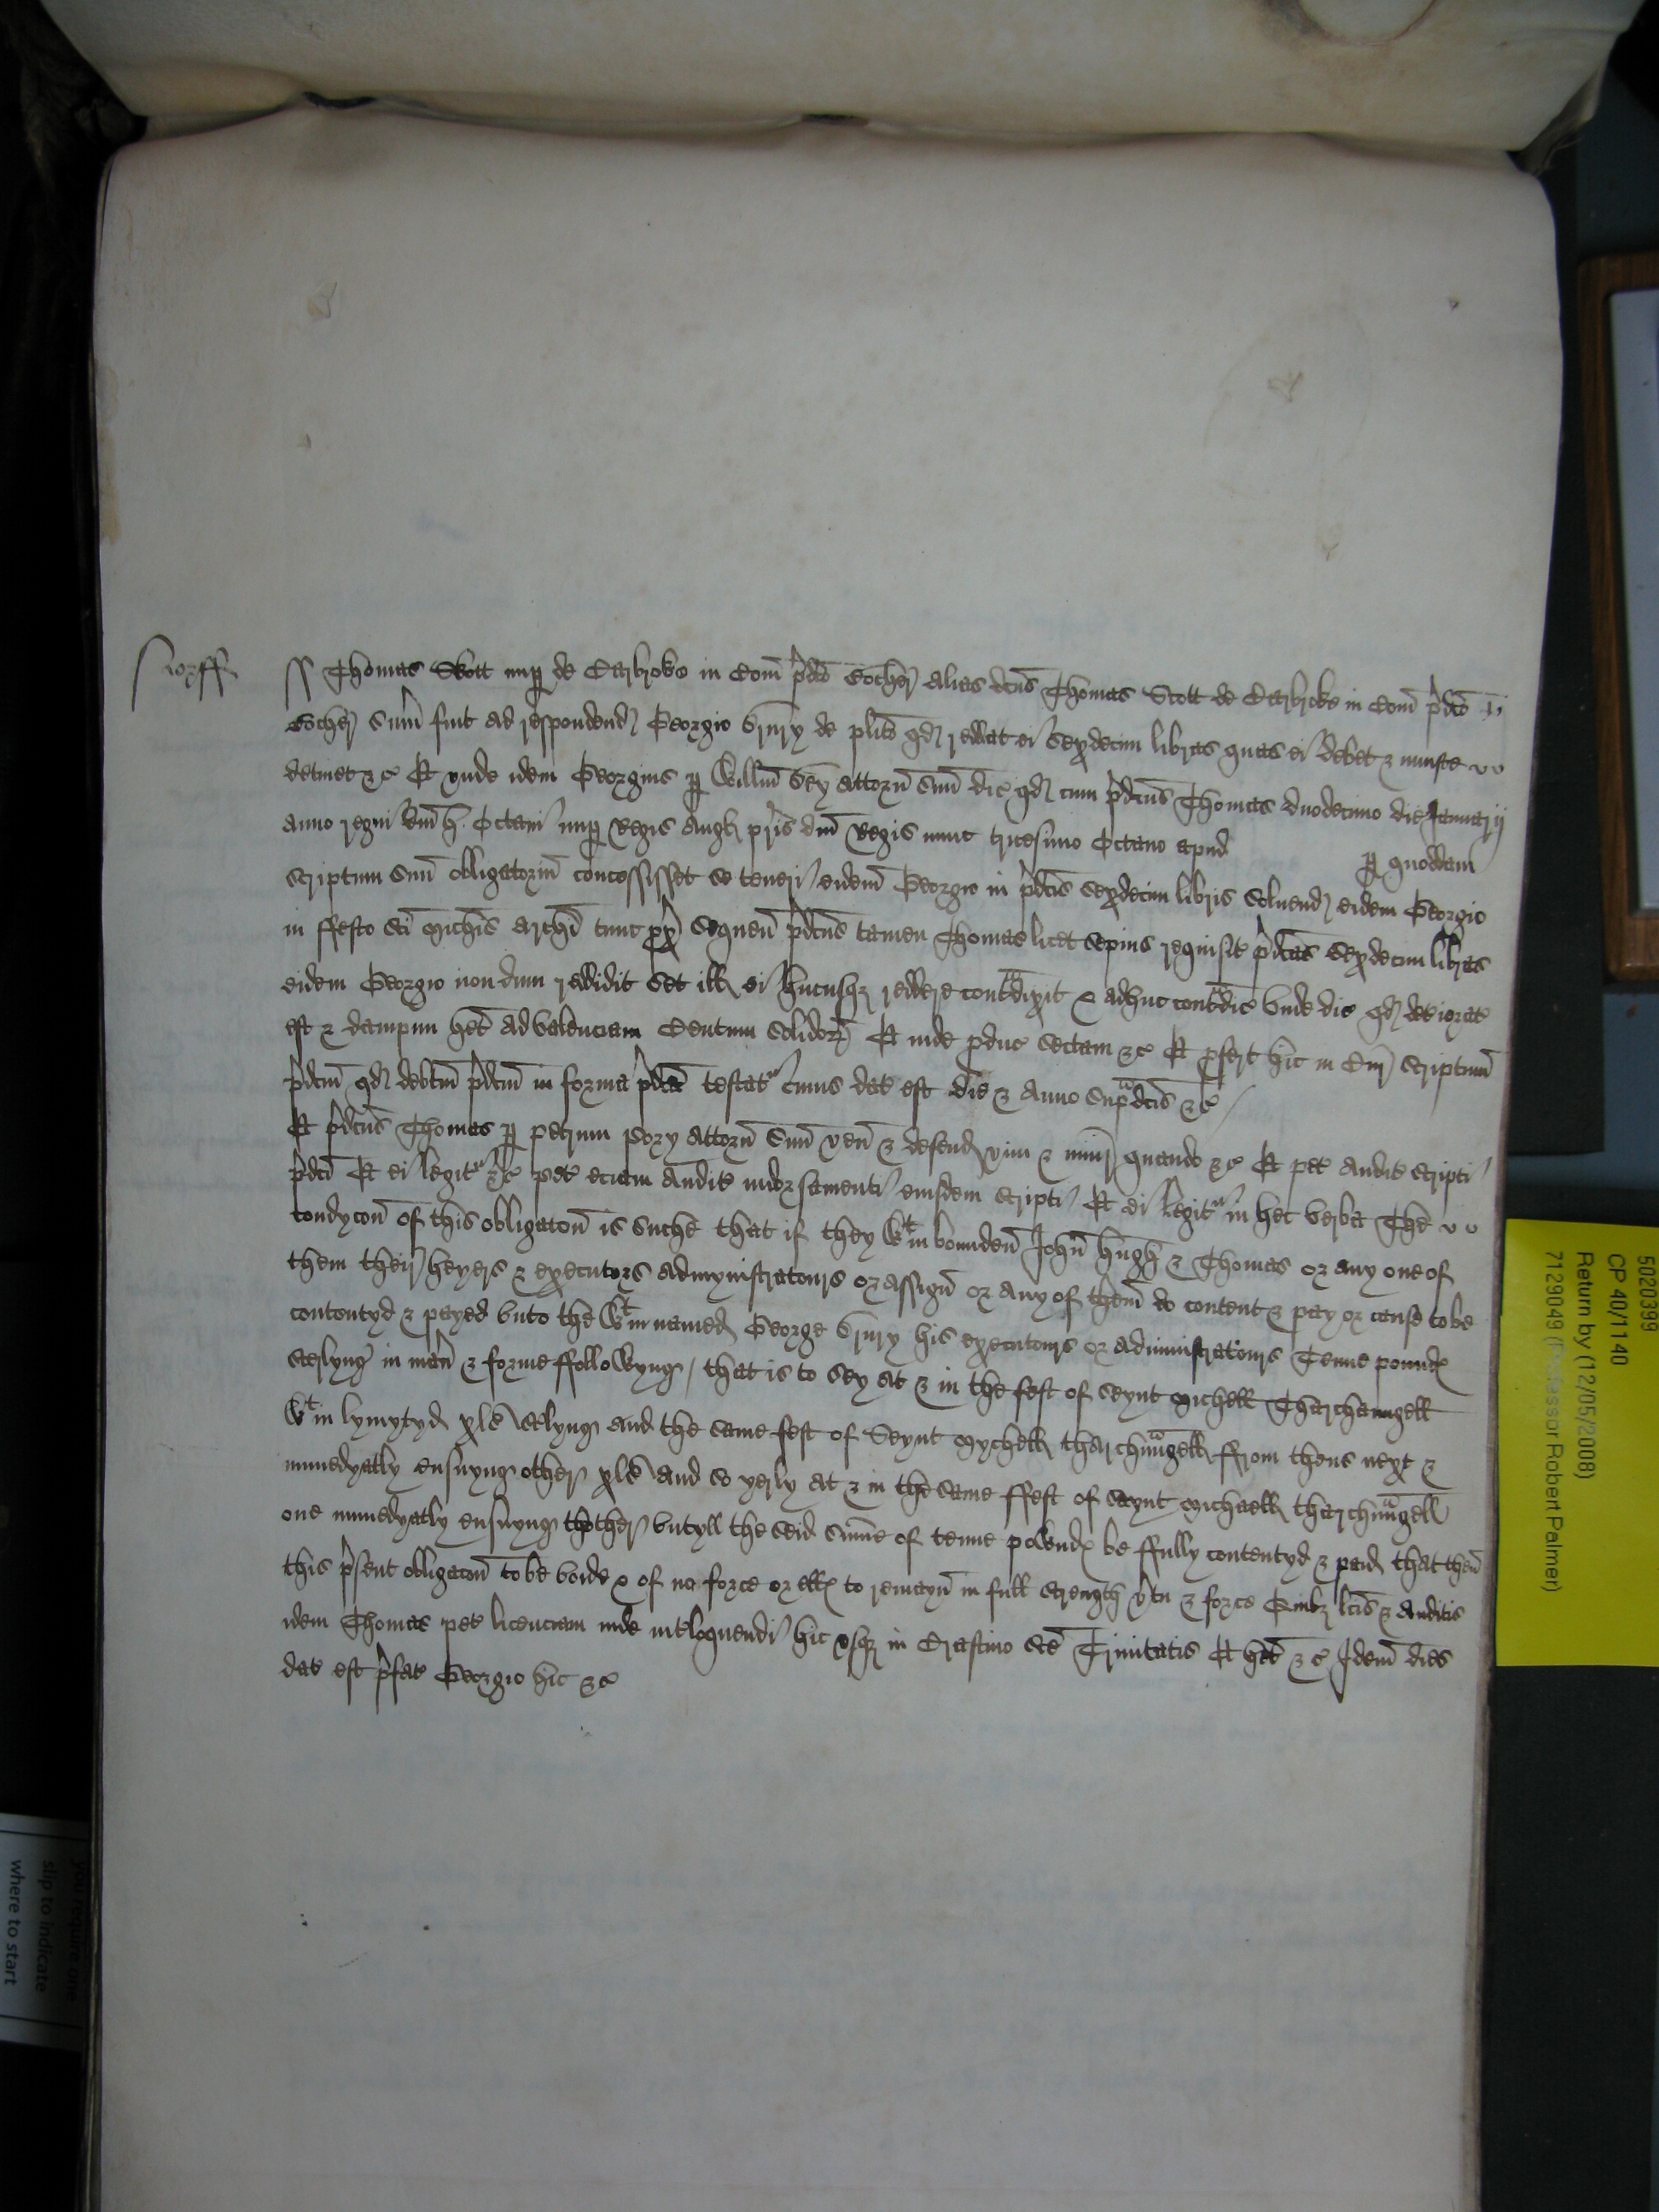 Norff
ss Thomas Skott nup de Carbroke in Com pdco Bocher alias dcus Thomas Scott de Carbroke in Com pdco
Bocher Sum fuit ad respondend Georgio Drury de plito qd reddat ei Sexdecim libras quas ei debet & iniuste
detinet &c Et unde idem Georgius p Willm Sey attorn suu dic qd cum pdcus Thomas duodecimo die Januarij
anno regni dni H. Octavi nup Regis Angl pris dni Regis nunc tricesimo Octavo apud p quoddam
Scriptum suu obligatoriu concessisset se teneri eidem Georgio in pdcis Sexdecim libris Solvend eidem Georgio
in ffesto Sci Michis Archi tunc px Sequen pdcus tamen Thomas licet Sepius requisit pdcas Sexdecim libras
eidem Georgio nondum reddidit Set ill ei hucusq reddere contradixit & adhuc contradic unde dic qd deteriorat
est & dampnu het ad valenciam Centum Solidor Et inde pduc Sectam &c Et pfert hic in Cur Scriptum
pdcm qd debitm pdcm in forma pdca testat cuius dat est die & Anno Supradcis &c
Et pdcus Thomas p petrum Pory attorn suu ven & defend vim & iniur quando &c Et pet audit Scripti
pdci Et ei legit &c pet eciam audit indorsamenti eiusdem Scripti Et ei legit in hec verba The
condycon of this obligaton is suche that if they wt in bounden John hugh & Thomas or any one of
them their heyers & executors admynistratours or assign or any of them do content & pay or cause to be
contentyd & payed unto the wt in named George Drury his executours or administratours Tenne pound
sterlyng in man & forme ffollowyng / that is to Sey At & in the fest of Seynt Michell Tharchaungell
wt in lymytyd xls sterlyng and the same fest of Seynt Mychell tharchaungell ffrom thens next &
immedyatly ensuyng other xls and so yerly at & in the same ffest of Seynt Michaell tharchaungell
one immedyatly ensuyng thother untyll the seid Sume of tenne pownd be ffully contentyd & paid that then
this psent obligacon to be voide & of no force or ell to remayn in full strength vtu & force Quibz lcis & auditis
idem Thomas pet licenciam inde intloquendi hic usq in Crastino Sce Trinitatis Et het &c Idem dies
dat est pfat Georgio hic &c
5020399
CP 40/1140
Return by (12/05/2008)
7129049 (Professor Robert Palmer)
you require one
slip to indicate
where to start